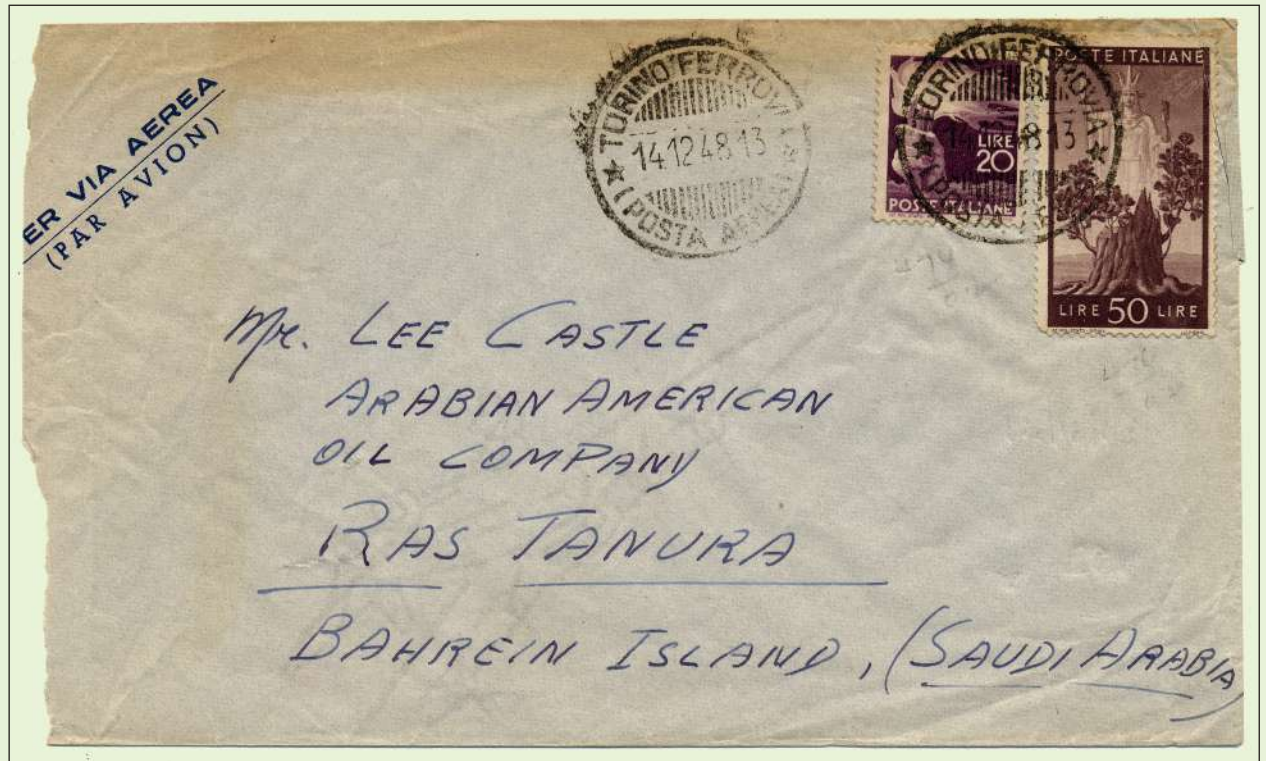 ER VIA AEREA
(PAR AVION)
TORINO FERROVIA
14.12.48.13
(POSTA AEREA)
LIRE
20
POSTE ITALIANE
TORINO FERROVIA
13
POSTE ITALIANE
LIRE 50 LIRE
Mr. LEE CASTLE
ARABIAN AMERICAN
OIL COMPANY
RAS TANURA
BAHREIN ISLAND, (SAUDI ARABIA)